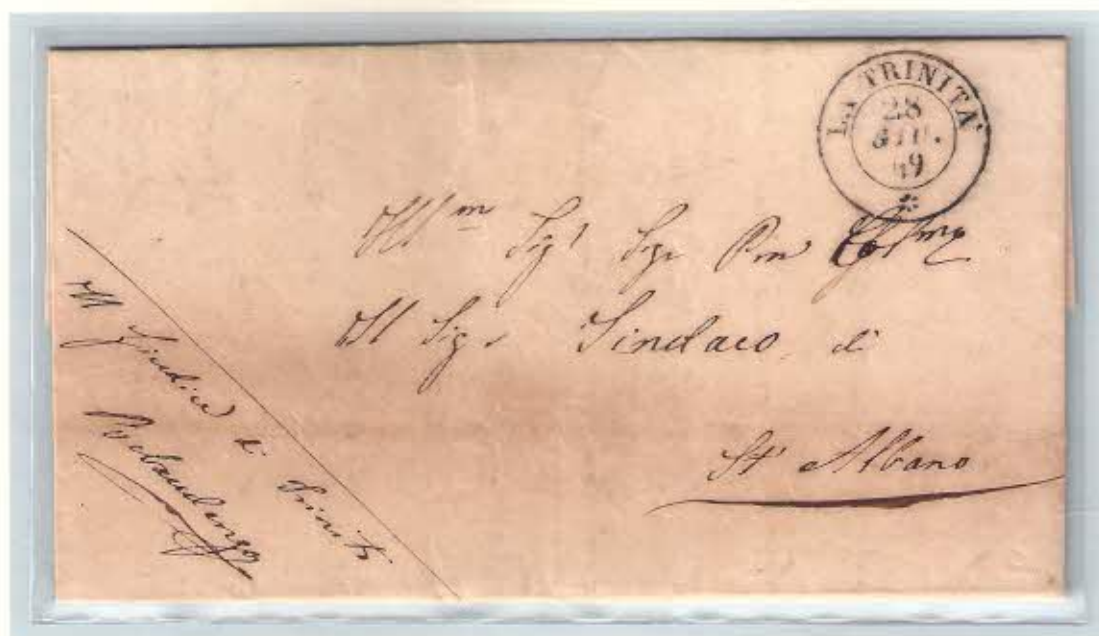 LA TRINITA'
28
GIU.
49
Ill.m Sigr Sigr Pron Col.mo
Il Sigr Sindaco di
St Albano
Il Giudice di Trinità